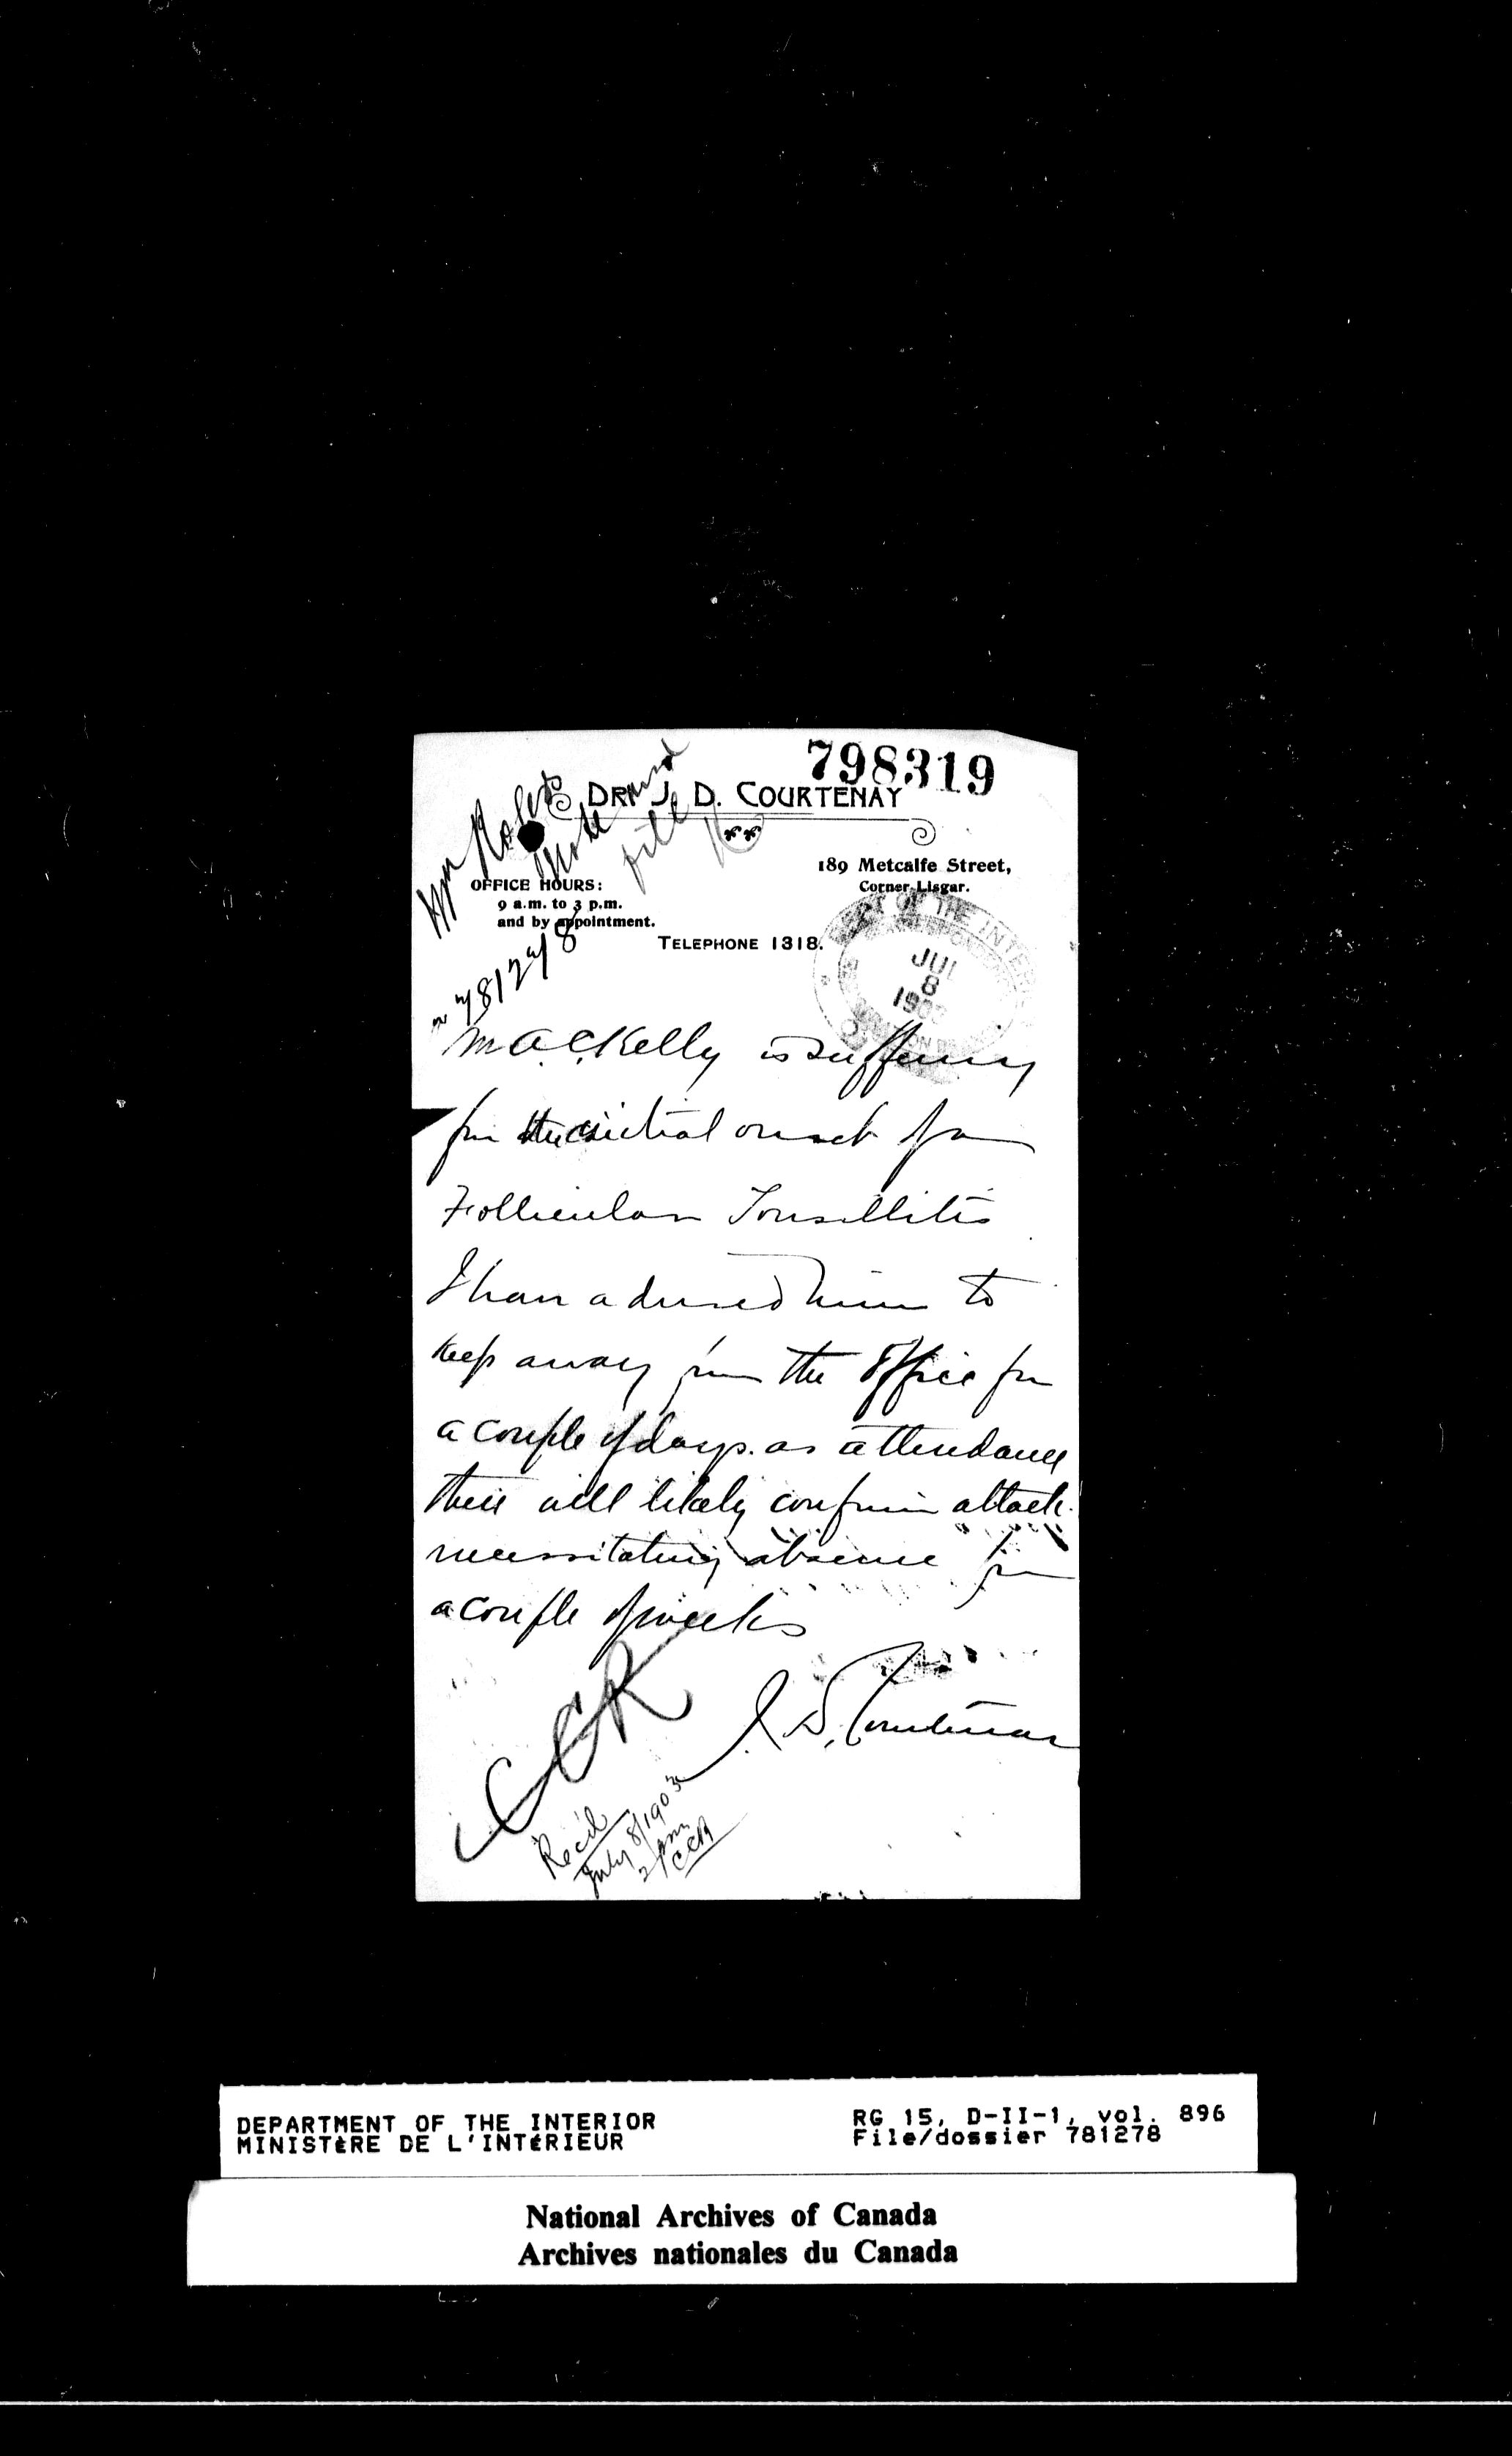 798319
DR. J. D. COURTENAY
189 Metcalfe Street,
Corner Lisgar.
OFFICE HOURS:
9 a.m. to 3 p.m.
and by appointment.
TELEPHONE 1318.
Note and
file
781278
DEPT OF THE INTERIOR
JUL
8
Mr A.C. Kelly is suffering
from the initial onset of a
Follicular Tonsillitis
I have advised him to
keep away from the office for
a couple of days. as attendance
there will likely confirm attack
necessitating absence for
a couple of weeks
J. D. Courtenay
CCR
Rec'd
July 8/1903
2 pm
CCR
DEPARTMENT OF THE INTERIOR
MINISTÈRE DE L'INTÉRIEUR
RG 15, D-II-1, vol. 896
File/dossier 781278
National Archives of Canada
Archives nationales du Canada